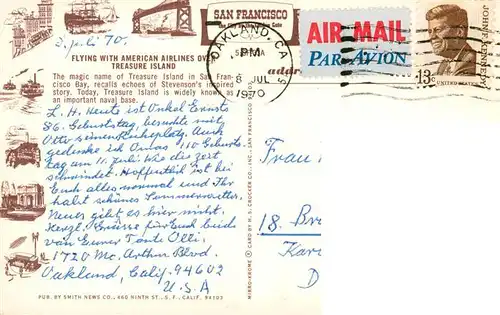 8. Juli 70.
FLYING WITH AMERICAN AIRLINES OVER
TREASURE ISLAND
The magic name of Treasure Island in San Fran-
cisco Bay, recalls echoes of Stevenson's inspired
story. Today, Treasure Island is widely known as
an important naval base.
L. H. Heute ist Onkel Ernsts
86. Geburtstag, besuchte mit
Otto seinen Ruheplatz. Auch
gedenke ich Omas 110 Geburts
tag am 11. Juli. Wie die Zeit
schwindet. Hoffentlich ist bei
Euch alles normal und Ihr
habt schönes Sommerwetter.
Neues gibt es hier nicht.
Herzl. Grüsse für Euch beide
von Eurer Tante Olli.
1720 Mc. Arthur Blvd.
Oakland, Calif. 94602
U.S.A
PUB. BY SMITH NEWS CO., 460 NINTH ST., S.F., CALIF. 94103
MIRRO-KROME ® CARD BY H.S. CROCKER CO., INC., SAN FRANCISCO
SAN FRANCISCO
OAKLAND, CA
PM
8 JUL
1970
AIR MAIL
PAR AVION
addr
JOHN F. KENNEDY
13c
UNITED STATES
Frau
18. Br
Kar
D